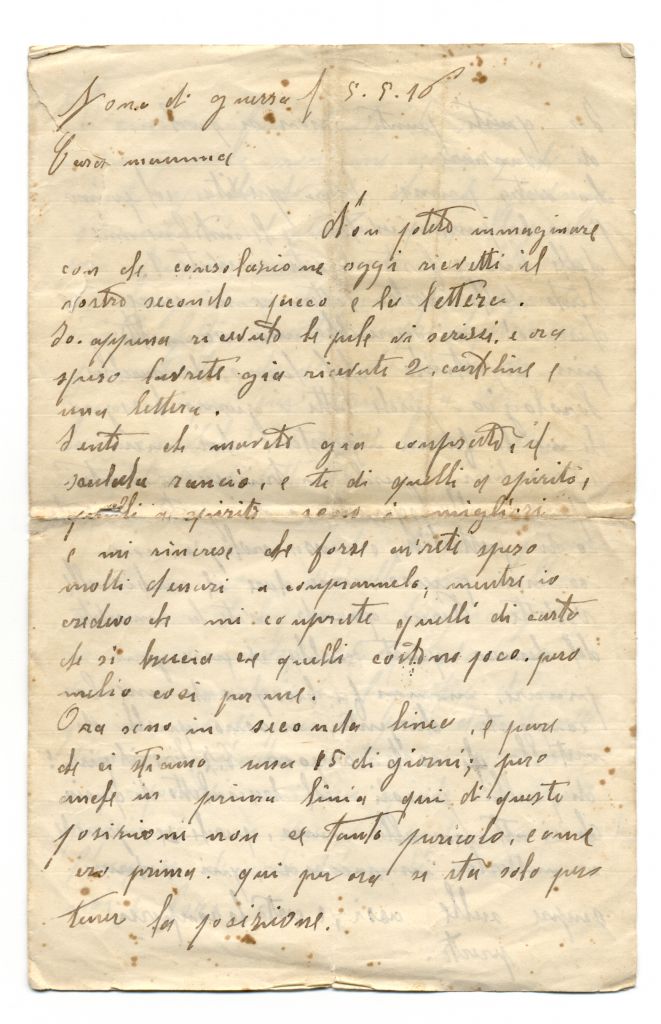 Zona di guerra / 5.5.16
Cara mamma
Non potete immaginare
con che consolazione oggi ricevetti il
vostro secondo pacco e la lettera.
Io appena ricevuto le pele vi scrissi, e ora
spero l'avrete gia ricevute 2 cartoline e
una lettera.
Sento che mavete gia comprato, il
scalda rancio, e te di quelli a spirito,
quelli a spirito sono i migliori
e mi rincrese che forse avrete speso
molti denari a comprarmelo, mentre io
credevo che mi compraste quelli di carta
che si brucia ce quelli costono poco. pero
melio cosi per me.
Ora sono in seconda linea, e pare
che ci stiamo una 15 di giorni; pero
anche in prima linia qui di queste
posizioni non ce tanto pericolo, come
ero prima. qui per ora si sta solo per
tener la posizione.